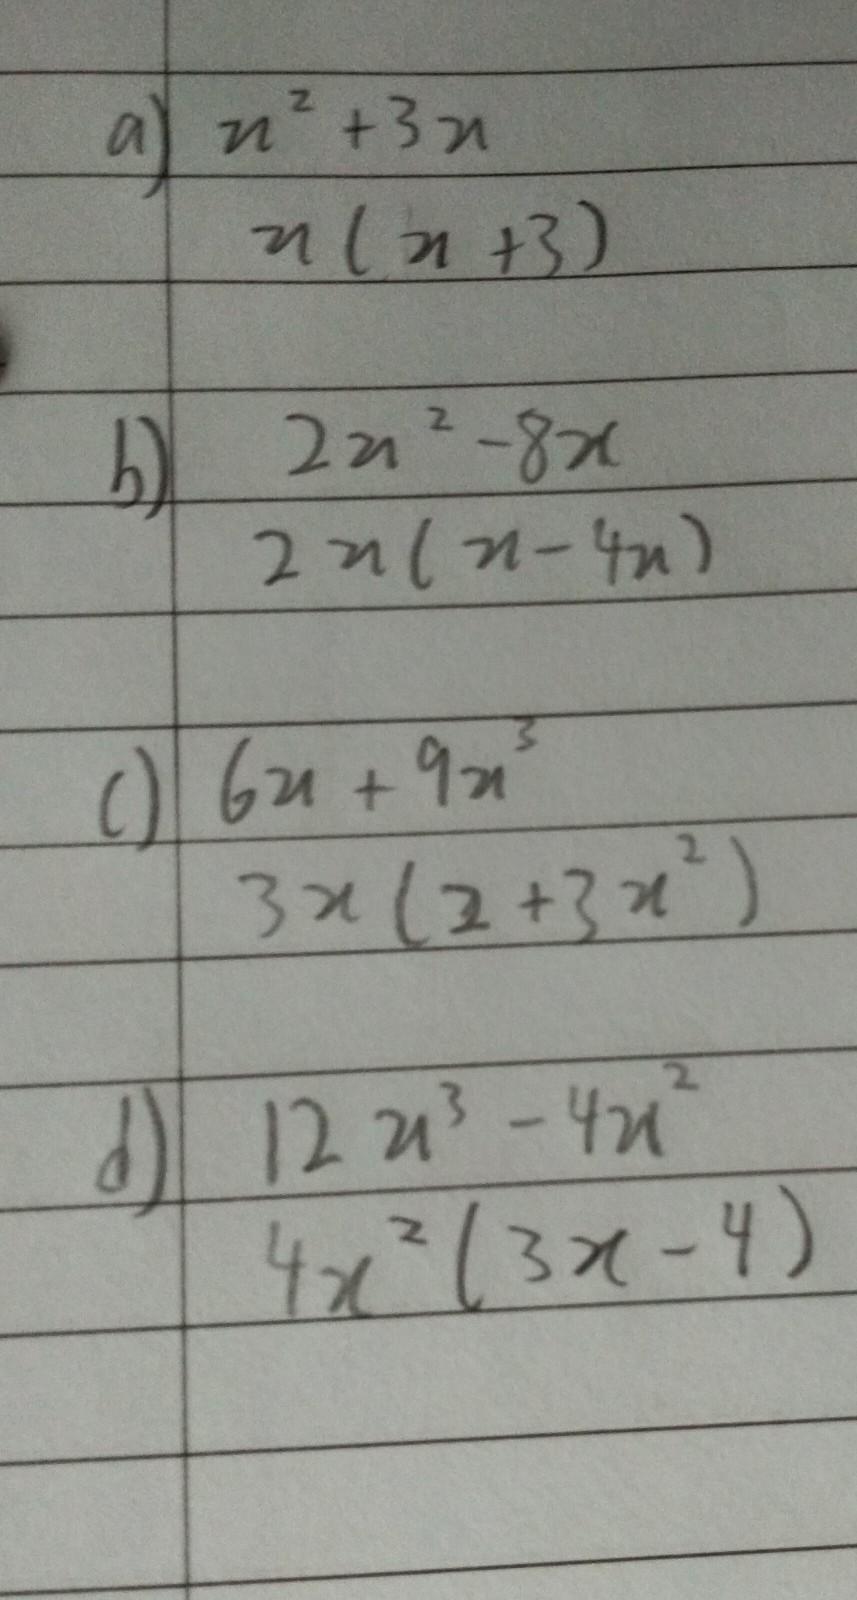 a) x² + 3x
x(x + 3)
b) 2x² - 8x
2x(x - 4x)
c) 6x + 9x³
3x(2 + 3x²)
d) 12x³ - 4x²
4x²(3x - 4)